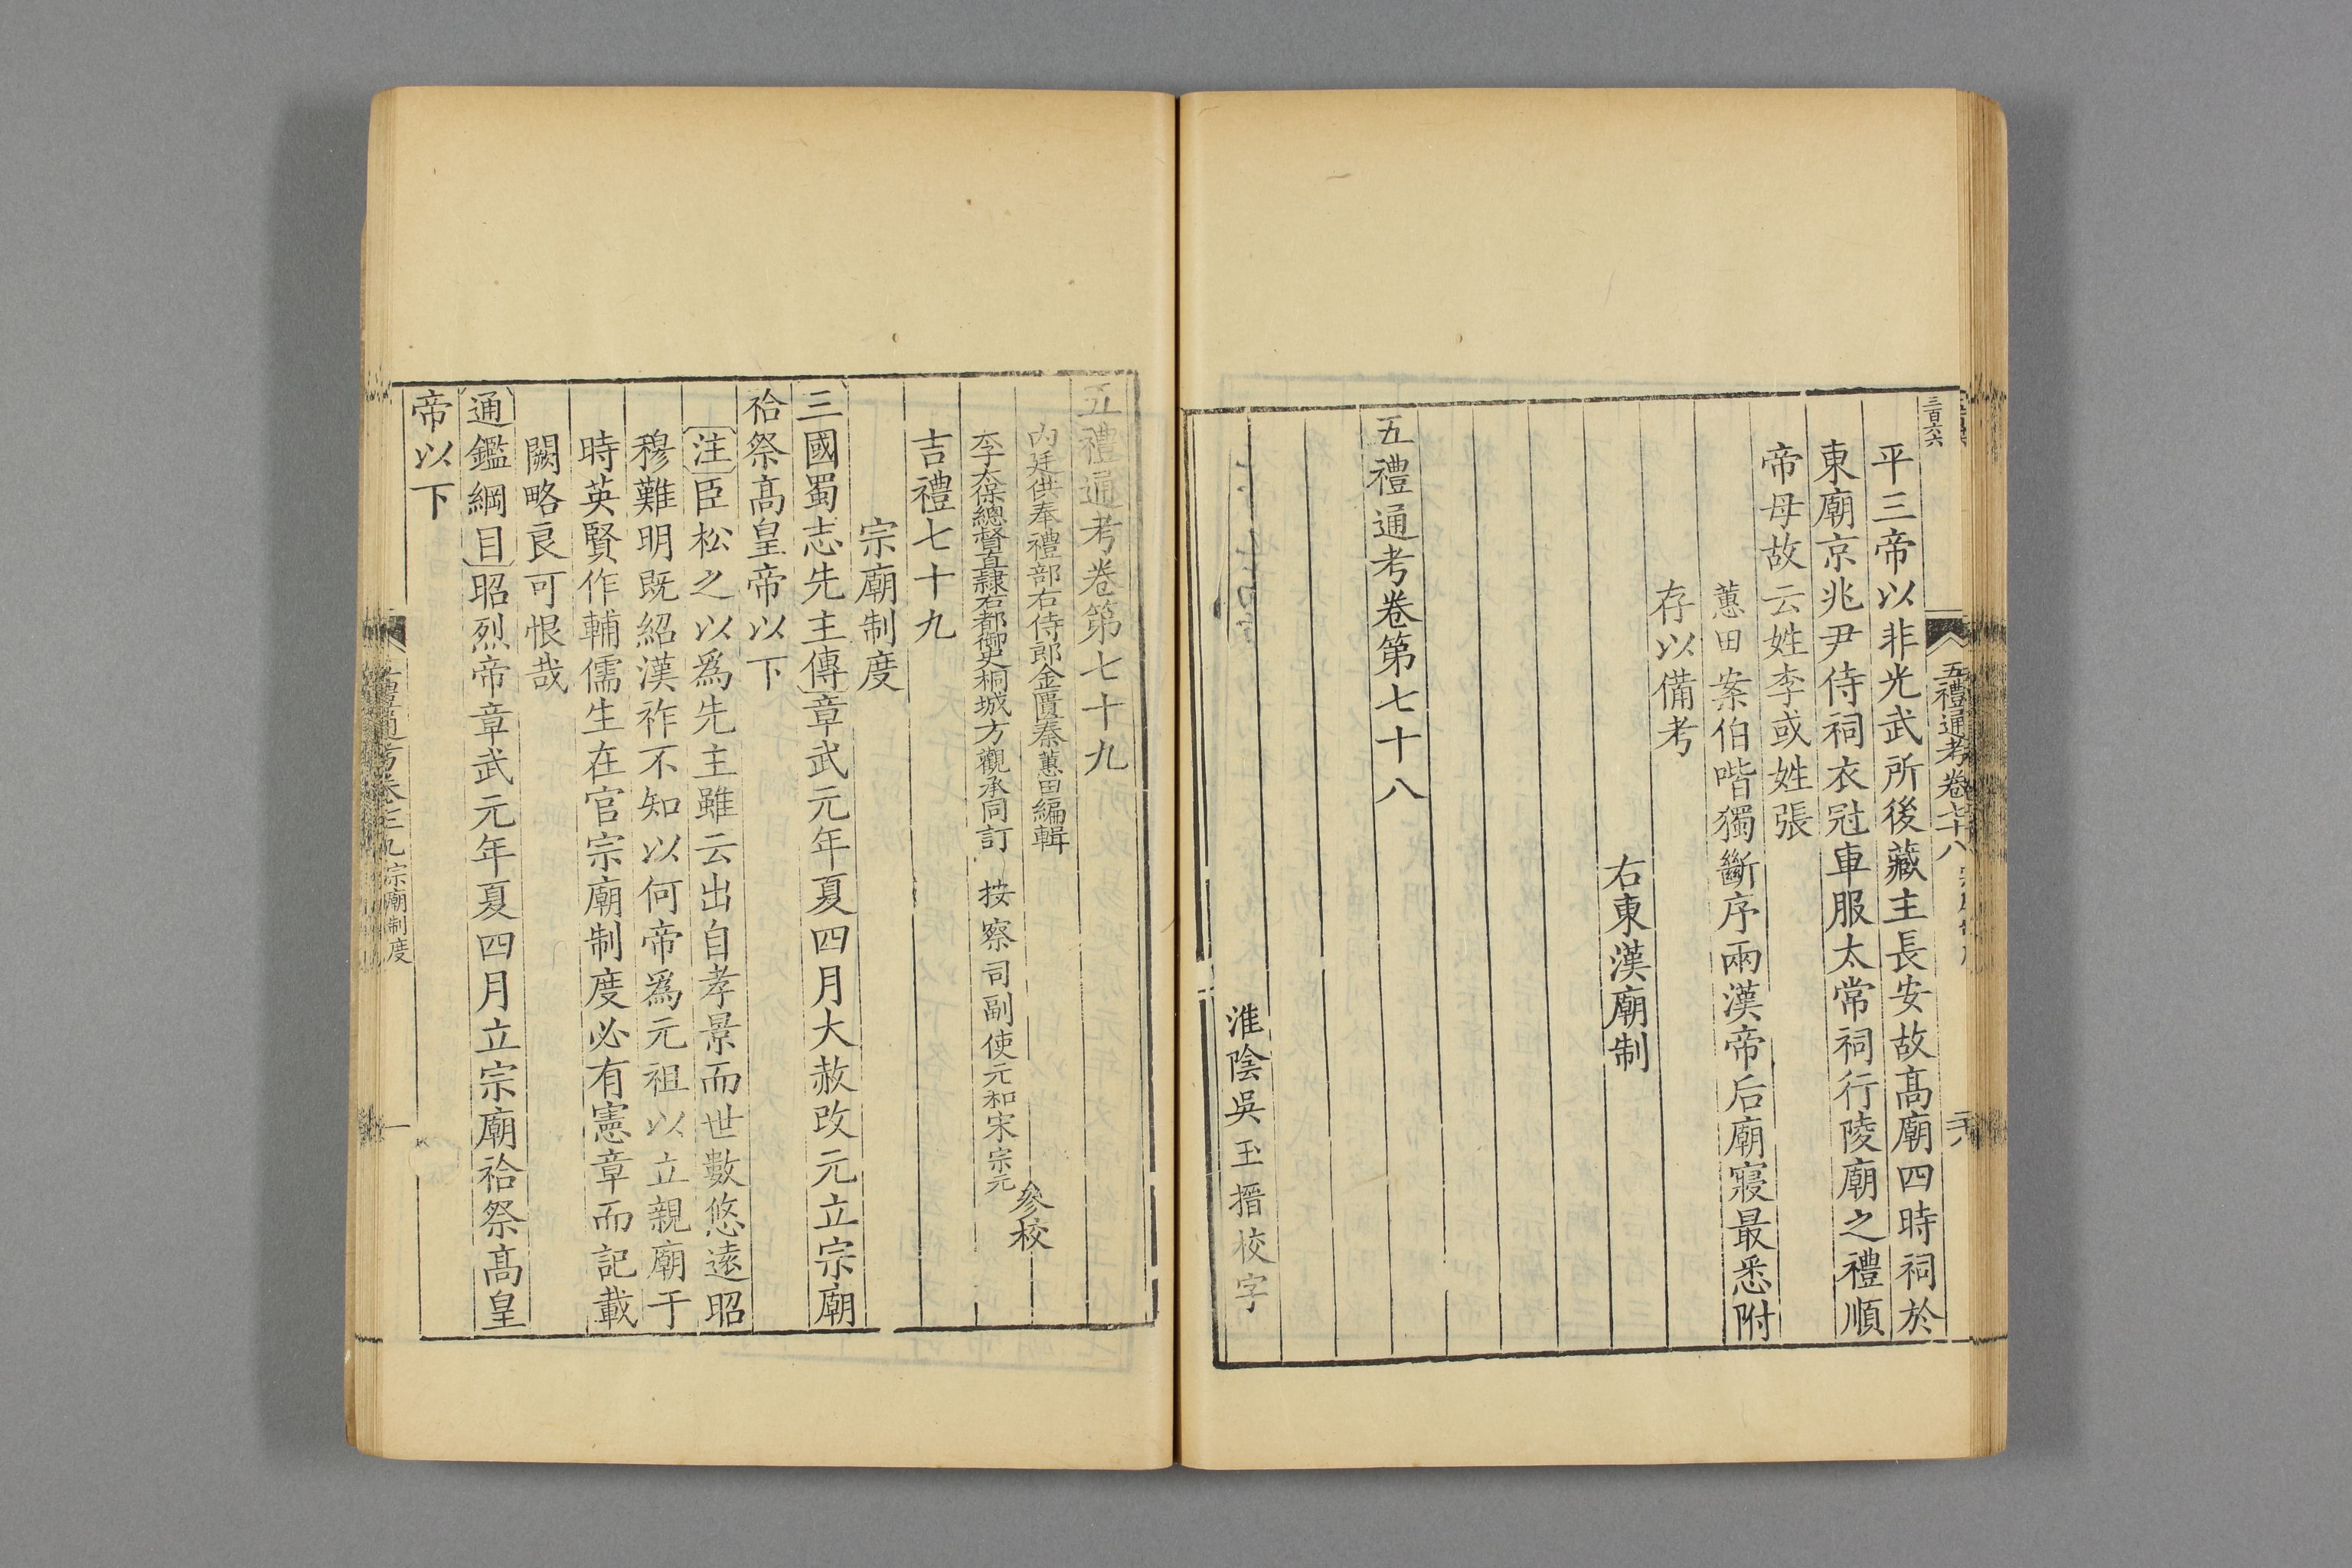 三百六六
五禮通考卷七十八
六
平三帝以非光武所後藏主長安故髙廟四時祠於
東廟京兆尹侍祠衣冠車服太常祠行陵廟之禮順
帝母故云姓李或姓張
蕙田案伯喈獨斷序兩漢帝后廟寢最悉附
存以備考
右東漢廟制
五禮通考卷第七十八
淮陰吳玉搢校字
五禮通考卷第七十九
內廷供奉禮部右侍郎金匱秦蕙田編輯
太保總督直隸右都御史桐城方觀承同訂
按察司副使元和宋宗元
參校
吉禮七十九
宗廟制度
三國蜀志先主傳章武元年夏四月大赦改元立宗廟
祫祭髙皇帝以下
注臣松之以爲先主雖云出自孝景而世數悠遠昭
穆難明既紹漢祚不知以何帝爲元祖以立親廟于
時英賢作輔儒生在官宗廟制度必有憲章而記載
闕略良可恨哉
通鑑綱目昭烈帝章武元年夏四月立宗廟祫祭髙皇
帝以下
五禮通考卷七十九
宗廟制度
一